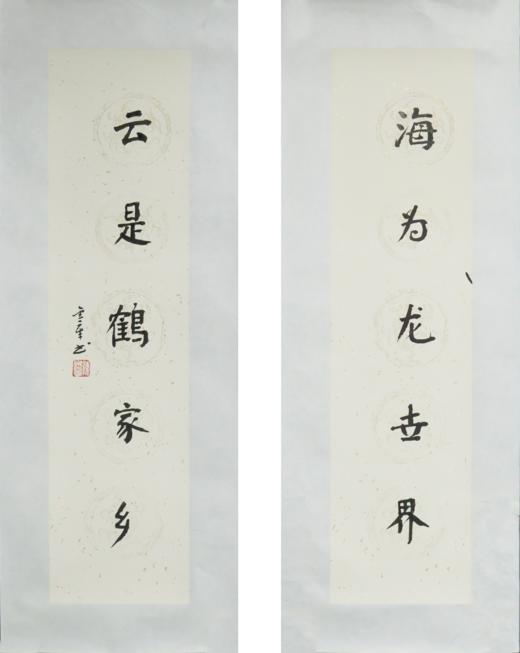 海为龙世界
云是鹤家乡